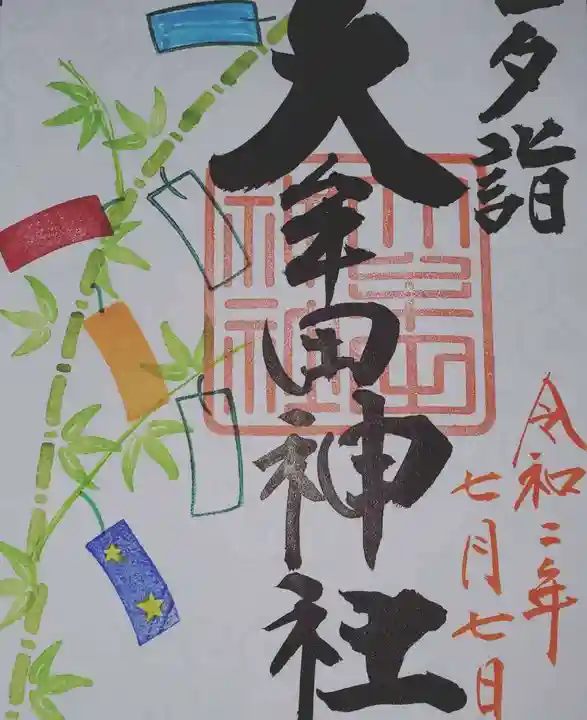 夕詣
大牟田神社
令和二年
七月七日